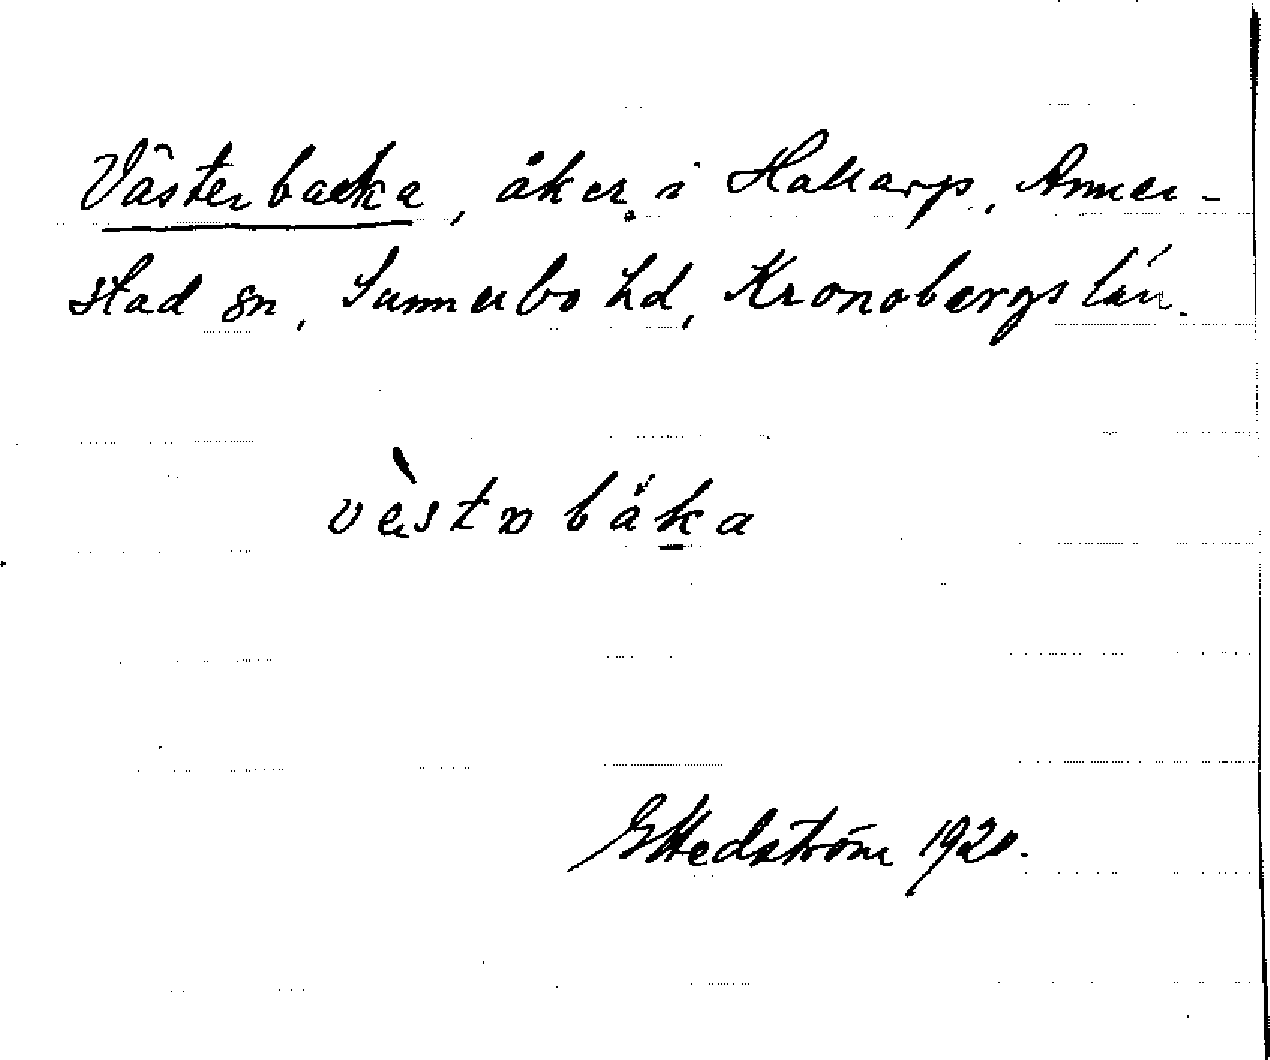 Västerbacka, åker i Hallarp, Anner-
stad sn, Sunnerbo hd, Kronobergs län.
vèstrbáka
G Hedström 1920.